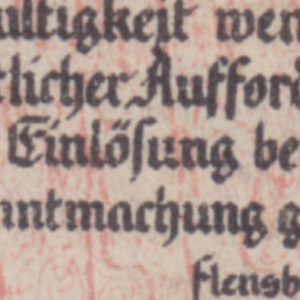 ultigkeit wen
tlicher Auffor
Einlösung be
nntmachung g
Flensb